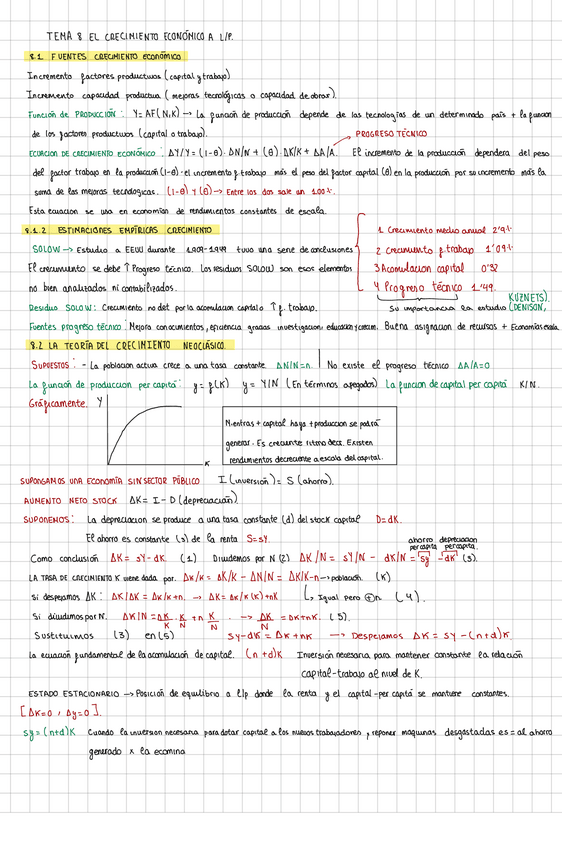 TEMA 8 EL CRECIMIENTO ECONÓMICO A L/P.
8.1 FUENTES CRECIMIENTO ECONÓMICO
Incremento factores productivos (capital y trabajo)
Incremento capacidad productiva (mejoras tecnológicas o capacidad de obrar).
Función de PRODUCCIÓN: Y=AF(N,K) → La función de producción depende de las tecnologías de un determinado país + la función
de los factores productivos (capital o trabajo).
→ PROGRESO TÉCNICO
ECUACIÓN DE CRECIMIENTO ECONÓMICO: ΔY/Y = (1-θ) · ΔN/N + (θ) · ΔK/K + ΔA/A. El incremento de la producción dependera del peso
del factor trabajo en la producción (1-θ) · el incremento f. trabajo más el peso del factor capital (θ) en la producción por su incremento más la
suma de las mejoras tecnologicas. (1-θ) Y (θ) → Entre los dos sale un 100%.
Esta ecuación se usa en economías de rendimientos constantes de escala.
8.1.2 ESTIMACIONES EMPÍRICAS CRECIMIENTO
1. Crecimiento medio anual 2'9%
SOLOW → Estudio a EEUU durante 1909-1949 tuvo una serie de conclusiones
2 Crecimiento f. trabajo 1'09%
El crecimiento se debe ↑ Progreso técnico. Los residuos SOLOW son esos elementos
3 Acumulacion capital 0'32
no bien analizados ni contabilizados.
4 Progreso técnico 1'49.
Residuo SOLOW: Crecimiento no det por la acumulacion capital o ↑ f. trabajo.
Su importancia la estudio (DENISON, KUZNETS).
Fuentes progreso técnico: Mejora conocimientos, eficiencia gracias investigacion educacion y cream. Buena asignacion de recursos + Economías escala
8.2 LA TEORÍA DEL CRECIMIENTO NEOCLÁSICO.
SUPUESTOS: - La poblacion activa crece a una tasa constante ΔN/N=n. | No existe el progreso técnico ΔA/A=0
La función de producción per capitá: y=f(K) y = Y/N (En términos agregados) La función de capital per capitá K/N.
Gráficamente. Y
K
Mientras + capital haya + produccion se podrá
generar. Es creciente ritmo decr. Existen
rendimientos decreciente a escala del capital.
SUPONGAMOS UNA ECONOMÍA SIN SECTOR PÚBLICO I (inversión) = S (ahorro).
AUMENTO NETO STOCK ΔK= I - D (depreciación).
SUPONEMOS: La depreciacion se produce a una tasa constante (d) del stock capital D=dK.
El ahorro es constante (s) de la renta S=sY.
ahorro percapita depreciacion percapita.
Como conclusión ΔK = sY - dK. (1) Dividemos por N (2) ΔK/N = sY/N - dK/N = sy - dK (3).
LA TASA DE CRECIMIENTO K viene dada por. ΔK/K = ΔK/K - ΔN/N = ΔK/K-n → población. (K)
Si despejamos ΔK: ΔK/ΔK = ΔK/K+n. → ΔK = ΔK/K (K)+nK ↳ Igual pero ⊕n (4).
Si dividimos por N. ΔK/N = ΔK/K · K/N + n K/N. → ΔK/N = ΔK+nK. (5).
Sustituimos (3) en (5) sy-dK = ΔK+nK → Despejamos ΔK = sy - (n+d)K.
La ecuación fundamental de la acumulación de capital. (n+d)K Inversión necesaria para mantener constante la relación
capital-trabajo al nivel de K.
ESTADO ESTACIONARIO → Posición de equilibrio a l/p donde la renta y el capital-per capitá se mantiene constantes.
[ΔK=0, Δy=0].
sy = (n+d)K Cuando la inversion necesaria para dotar capital a los nuevos trabajadores, y reponer maquinas desgastadas es = al ahorro
generado x la ecomina